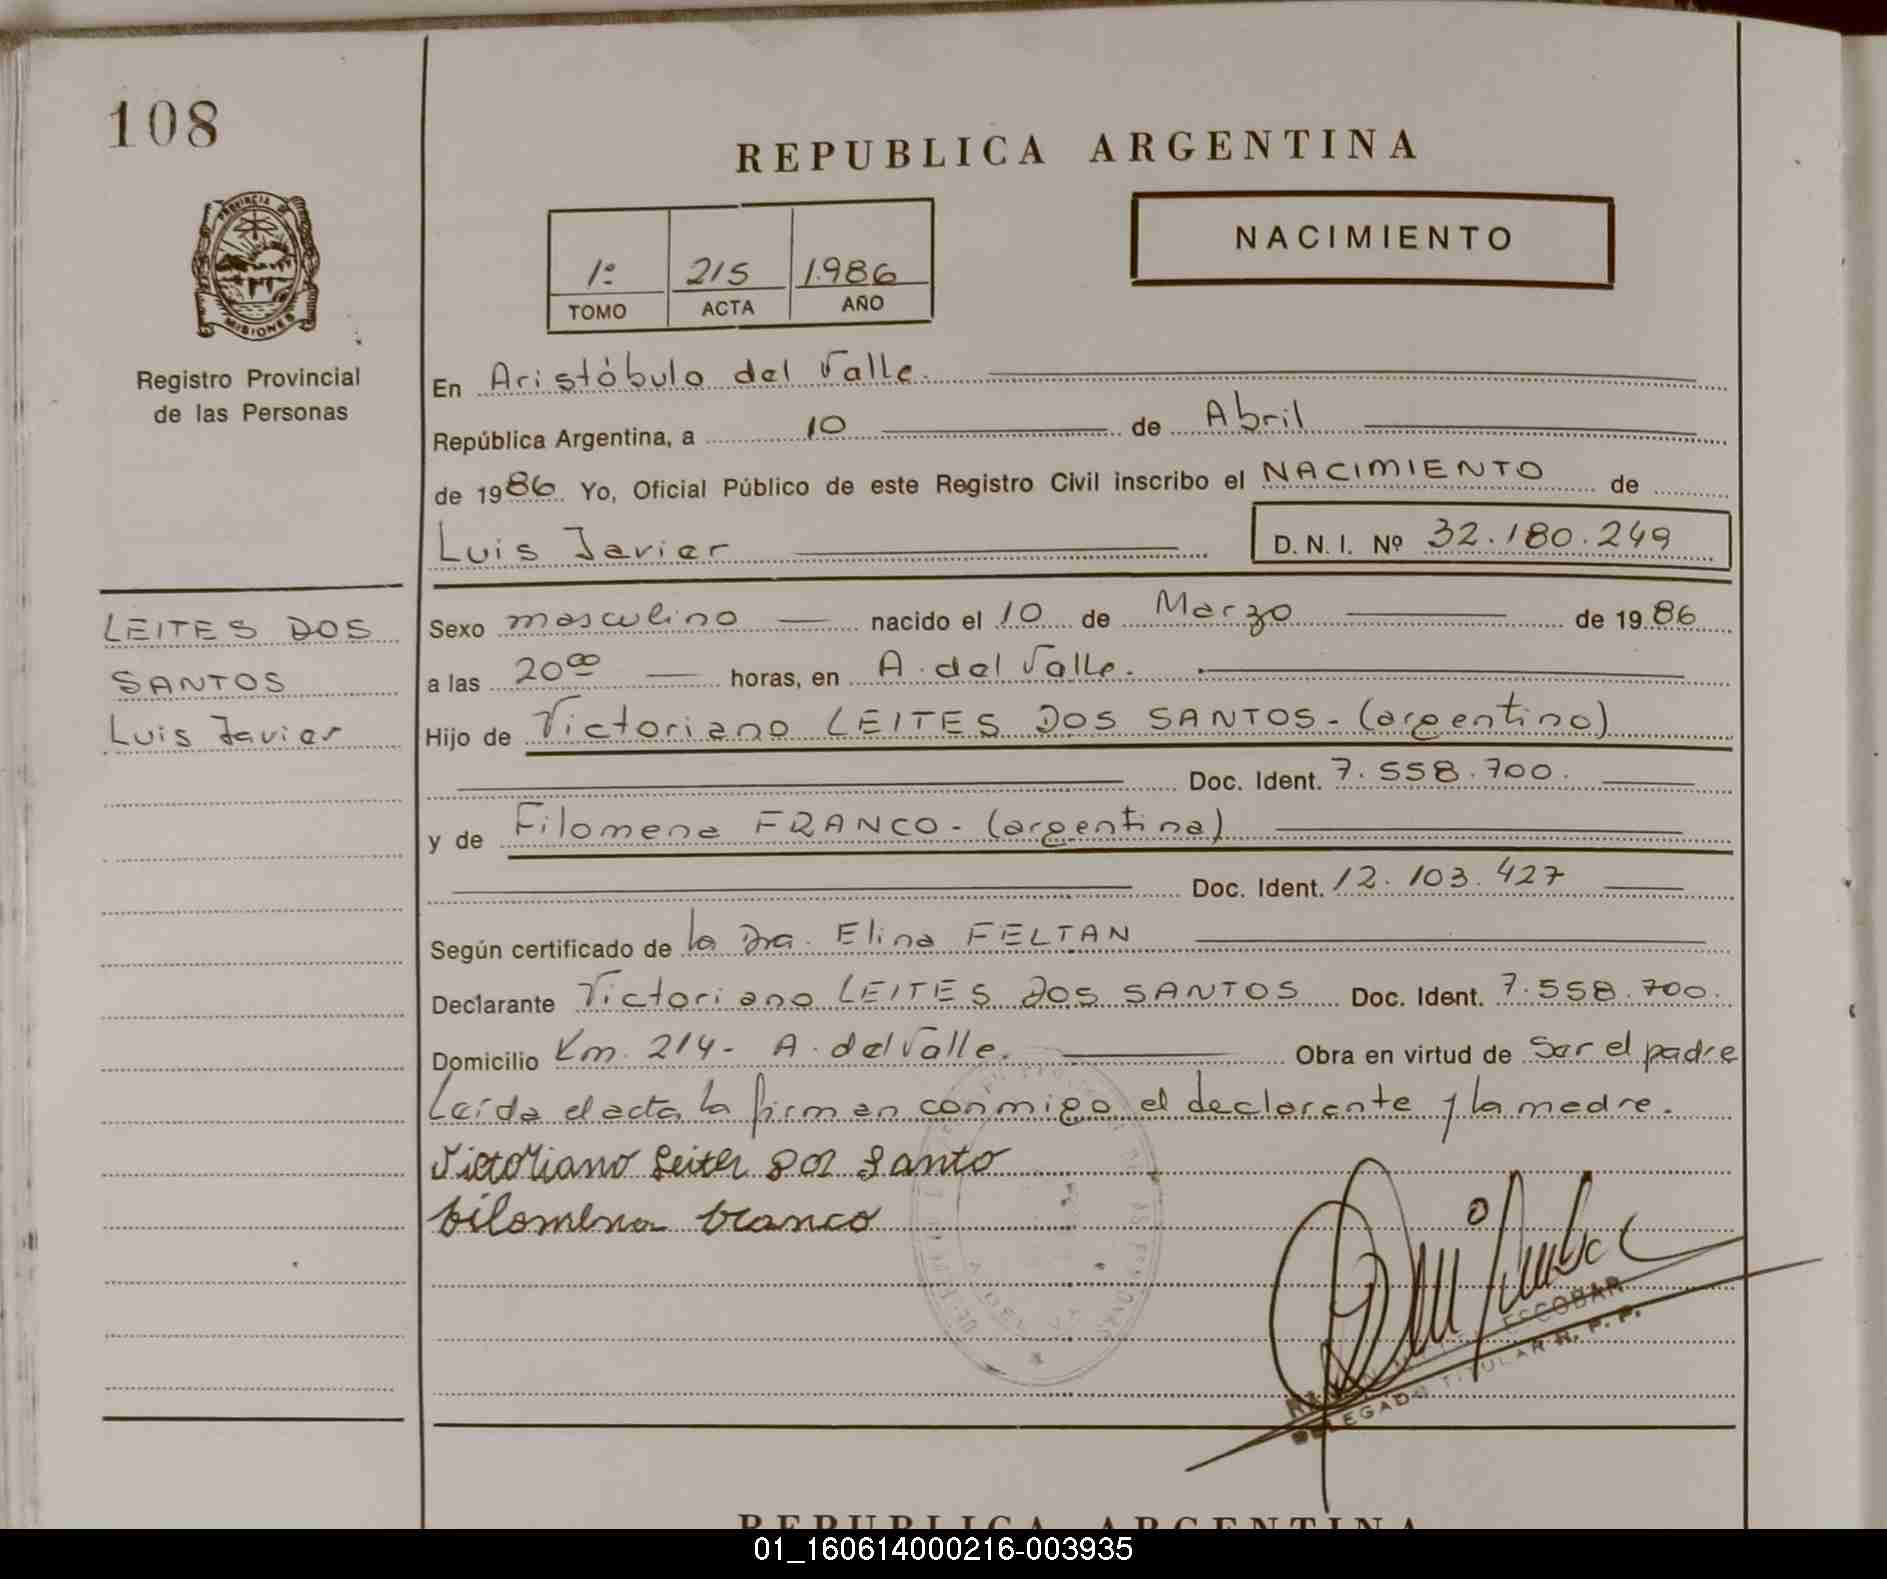 108
REPUBLICA ARGENTINA
PROVINCIA DE
MISIONES
NACIMIENTO
1º 215 1.986
TOMO ACTA AÑO
Registro Provincial
de las Personas
En Aristóbulo del Valle.
República Argentina, a 10 de Abril
de 1986 Yo, Oficial Público de este Registro Civil inscribo el NACIMIENTO de
Luis Javier D.N.I. Nº 32.180.249
LEITES DOS
SANTOS
Luis Javier
Sexo masculino nacido el 10 de Marzo de 1986
a las 20ºº horas, en A. del Valle.
Hijo de Victoriano LEITES DOS SANTOS - (argentino)
Doc. Ident. 7.558.700.
y de Filomena FRANCO - (argentina)
Doc. Ident. 12.103.427
Según certificado de la Dra. Elina FELTAN
Declarante Victoriano LEITES DOS SANTOS Doc. Ident. 7.558.700.
Domicilio Km. 214 - A. del Valle. Obra en virtud de Ser el padre
Leída el acta la firman conmigo el declarante y la madre.
Victoriano Leites Dos Santo
Filomena Franco
ESCOBAR
DELEGADO TITULAR R. P. P.
REPUBLICA ARGENTINA
01_160614000216-003935